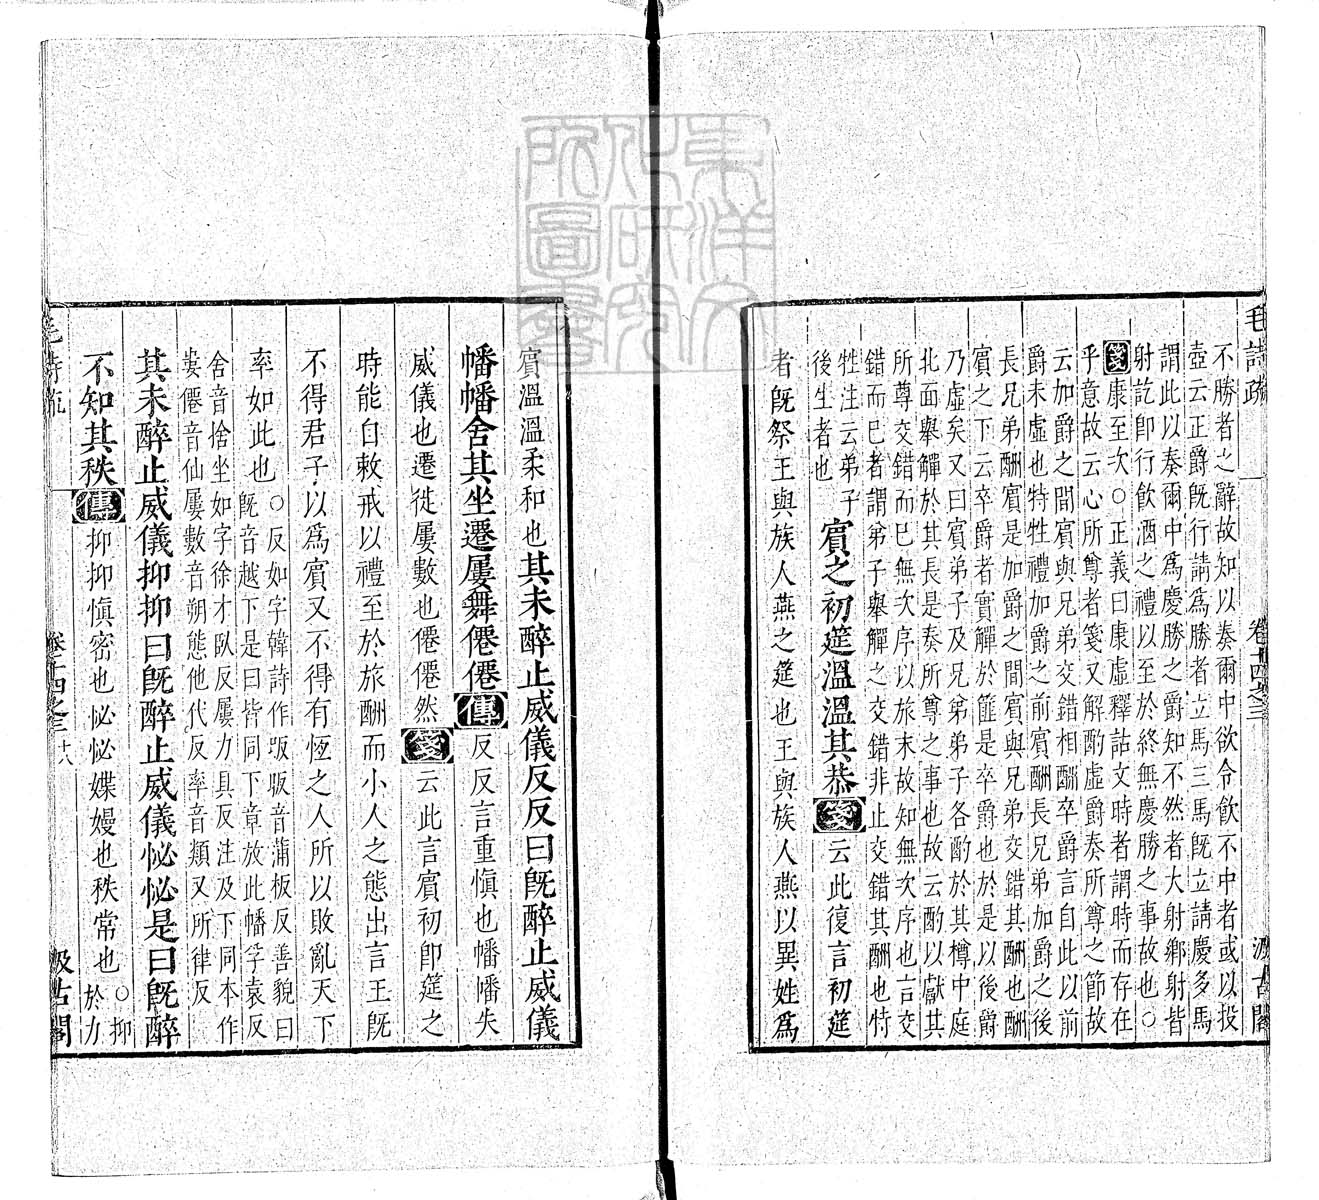 毛詩疏 卷十四之三 汲古閣
不勝者之辭故知以奏爾中欲令飲不中者或以投
壺云正爵旣行請爲勝者立馬三馬旣立請慶多馬
謂此以奏爾中爲慶勝之爵知不然者大射鄉射皆
射訖卽行飲酒之禮以至於終無慶勝之事故也○
箋康至次○正義曰康虛釋詁文時者謂時而存在
乎意故云心所尊者箋又解酌虛爵奏所尊之節故
云加爵之間賓與兄弟交錯相酬卒爵言自此以前
爵未虛也特牲禮加爵之前賓酬長兄弟加爵之後
長兄弟酬賓是加爵之間賓與兄弟交錯其酬也酬
賓之下云卒爵者實觶於篚是卒爵也於是以後爵
乃虛矣又曰賓弟子及兄弟弟子各酌於其樽中庭
北面舉觶於其長是奏所尊之事也故云酌以獻其
所尊交錯而已無次序以旅末故知無次序也言交
錯而已者謂弟子舉觶之交錯非止交錯其酬也特
牲注云弟子
後生者也
賓之初筵溫溫其恭箋云此復言初筵
者旣祭王與族人燕之筵也王與族人燕以異姓爲
賓溫溫柔和也其未醉止威儀反反曰旣醉止威儀
幡幡舍其坐遷屢舞僊僊傳反反言重愼也幡幡失
威儀也遷徙屢數也僊僊然箋云此言賓初卽筵之
時能自敕戒以禮至於旅酬而小人之態出言王旣
不得君子以爲賓又不得有恆之人所以敗亂天下
率如此也○反如字韓詩作昄昄音蒲板反善貌曰
旣音越下是曰皆同下章放此幡孚袁反
舍音捨坐如字徐才臥反屢力具反注及下同本作
婁僊音仙屢數音朔態他代反率音類又所律反
其未醉止威儀抑抑曰旣醉止威儀怭怭是曰旣醉
不知其秩傳抑抑愼密也怭怭媟嫚也秩常也○抑
於力
毛詩疏 卷十四之三 十八 汲古閣